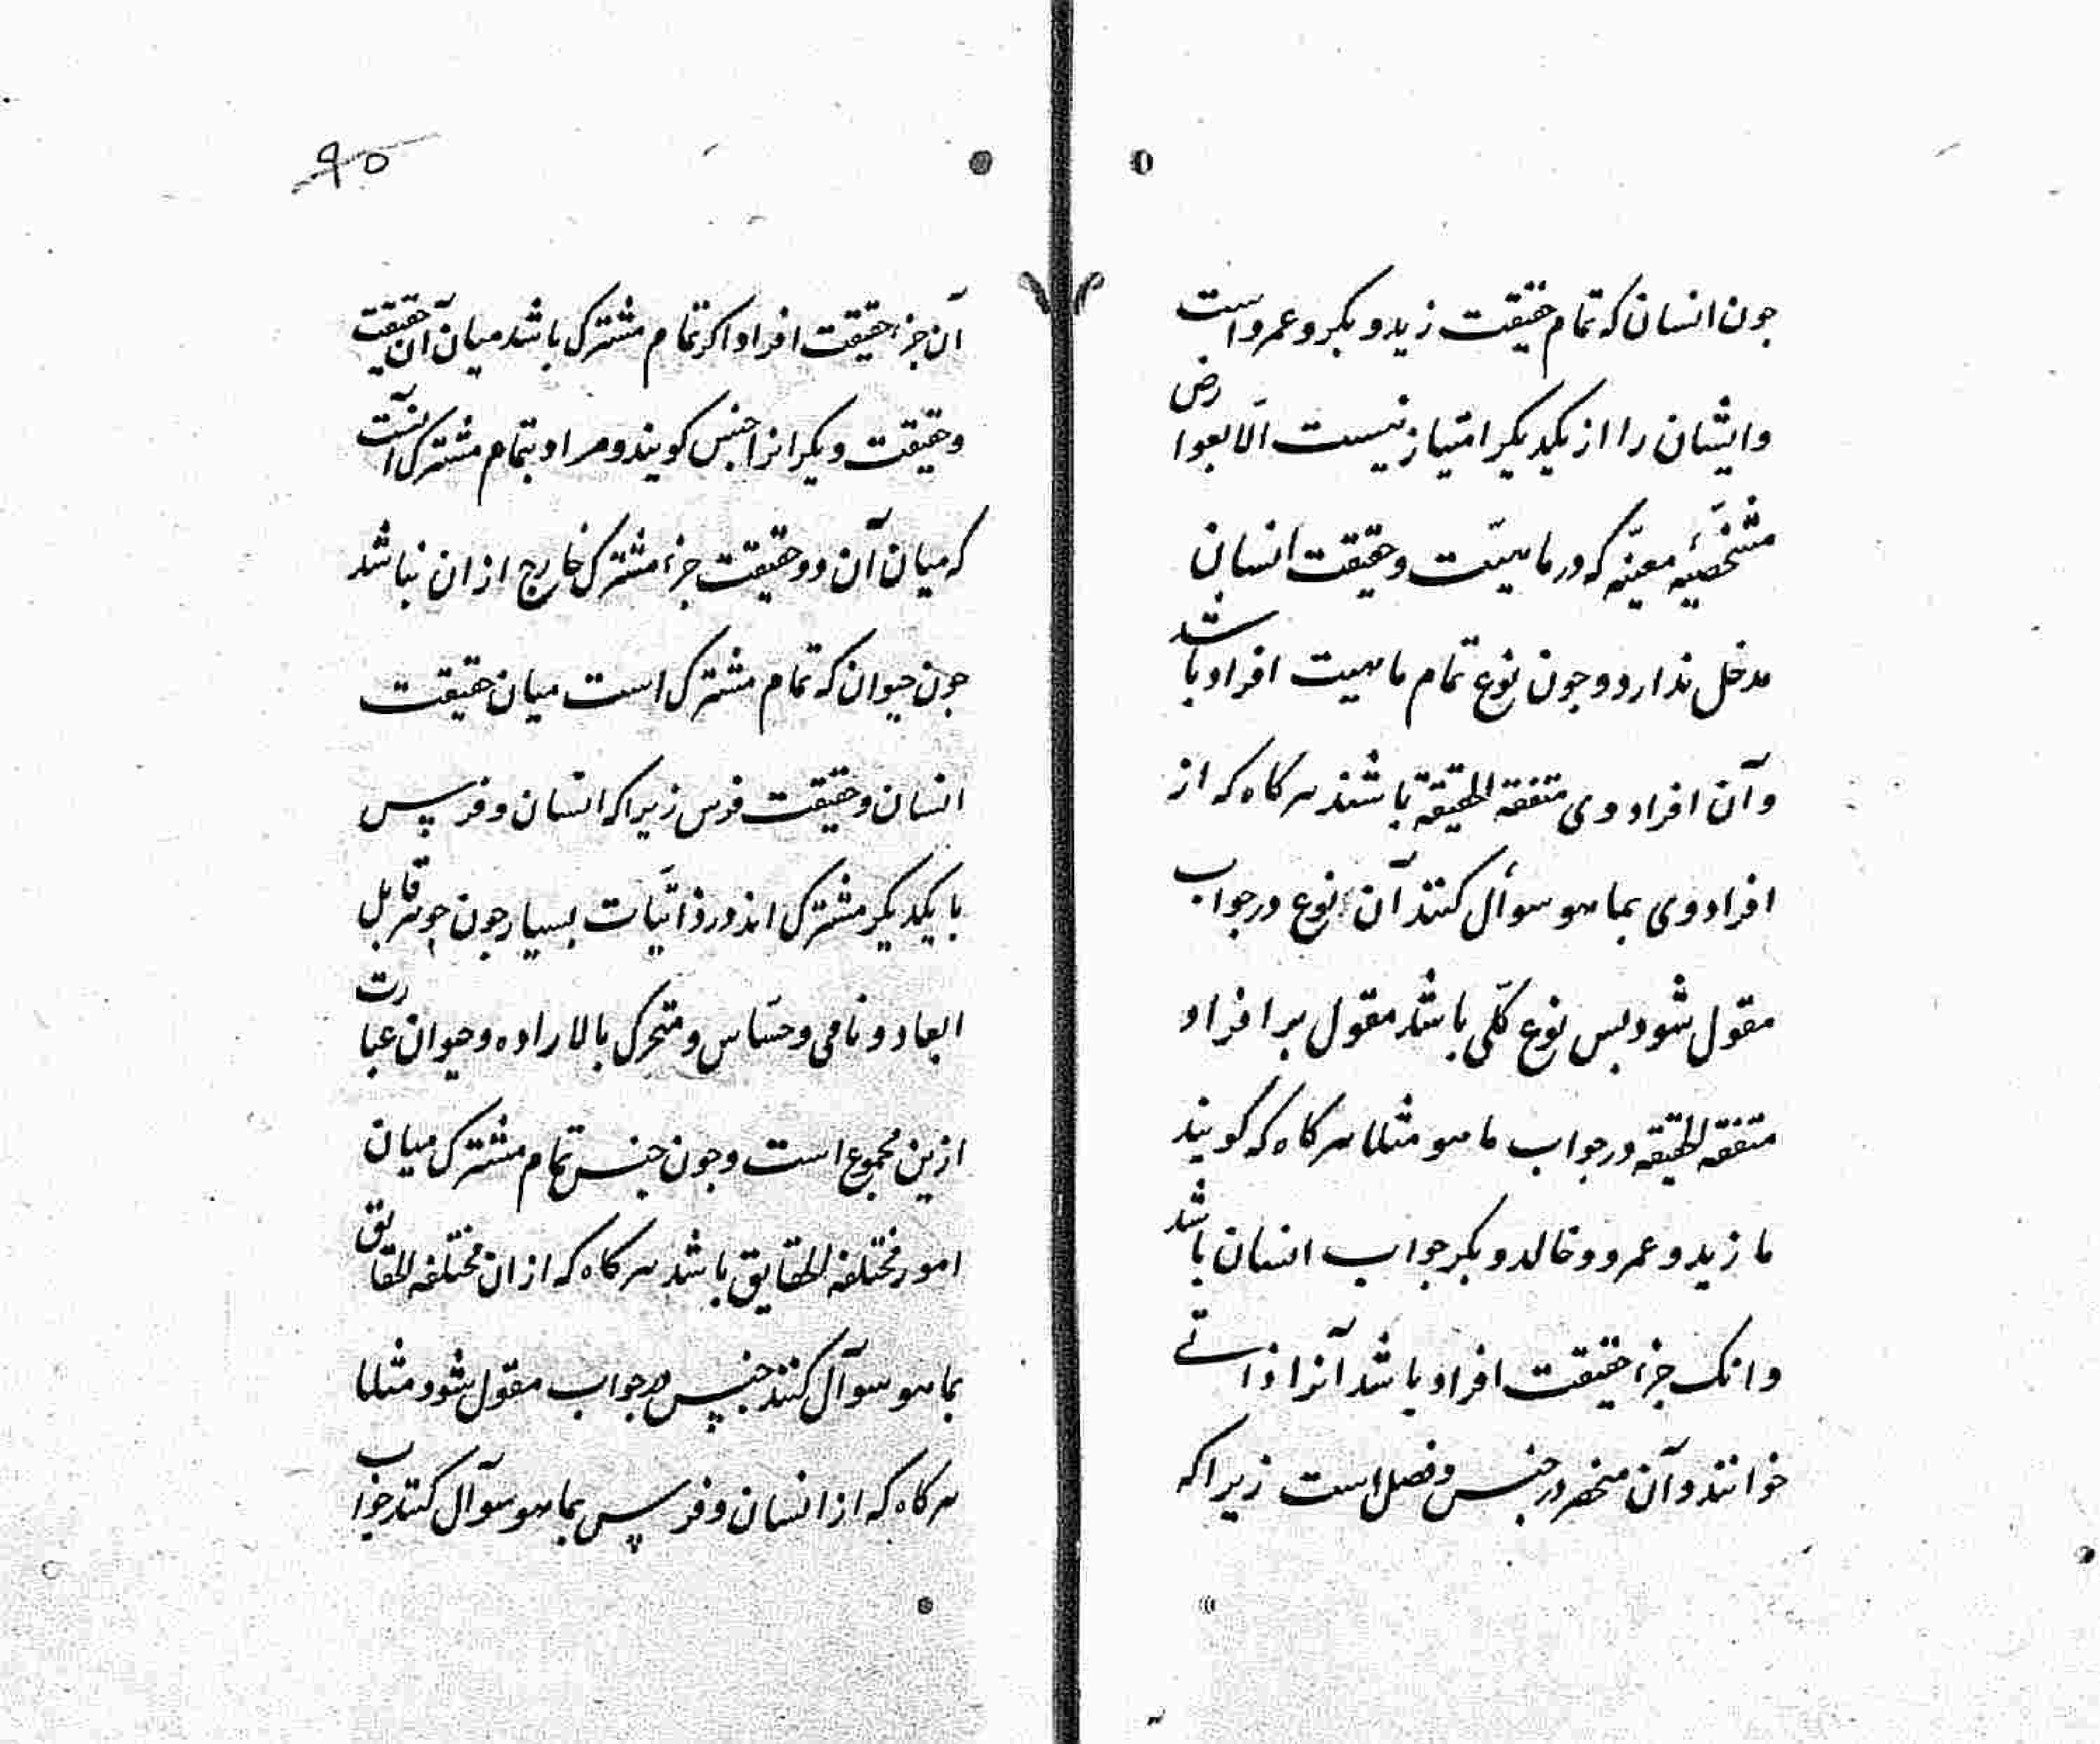 جون انسان که تمام حقیقت زید و بکر و عمرو است
و ایشان را از یکدیکر امتیاز نیست الّا بعوارض
مشخّصهٔ معیّنه که در ماهیّت و حقیقت انسان
مدخل ندارد و جون نوع تمام ماهیت افراد باشد
و آن افراد وی متفقة الحقیقة باشند هرکاه که از
افراد وی بما هو سوأل کنند آن نوع در جواب
مقول شود بس نوع کلّی باشد مقول بر افراد
متفقة الحقیقه در جواب ما هو مثلا هرکاه که کویند
ما زید و عمرو و خالد و بکر جواب انسان باشد
و انک جزء حقیقت افراد باشد آنرا ذاتے
خوانند و آن منحصر در جنس و فصل است زیرا که
۹۵
آن جزء حقیقت افراد اکر تمام مشترک باشد میان آن حقیقت
و حقیقت دیکر انرا جنس کویند و مراد بتمام مشترک آنست
که میان آن دو حقیقت جزء مشترک خارج از ان نباشد
جون حیوان که تمام مشترک است میان حقیقت
انسان و حقیقت فرس زیرا که انسان و فرس
با یکدیکر مشترک اند در ذاتیّات بسیار جون جوهر قابل
ابعاد و نامی و حسّاس و متحرک بالاراده و حیوان عبارت
ازین مجموع است و جون جنس تمام مشترک میان
امور مختلفة الحقایق باشد هرکاه که از ان مختلفة الحقایق
بما هو سوآل کنند جنس در جواب مقول شود مثلا
هرکاه که از انسان و فرس بما هو سوآل کنند جواب